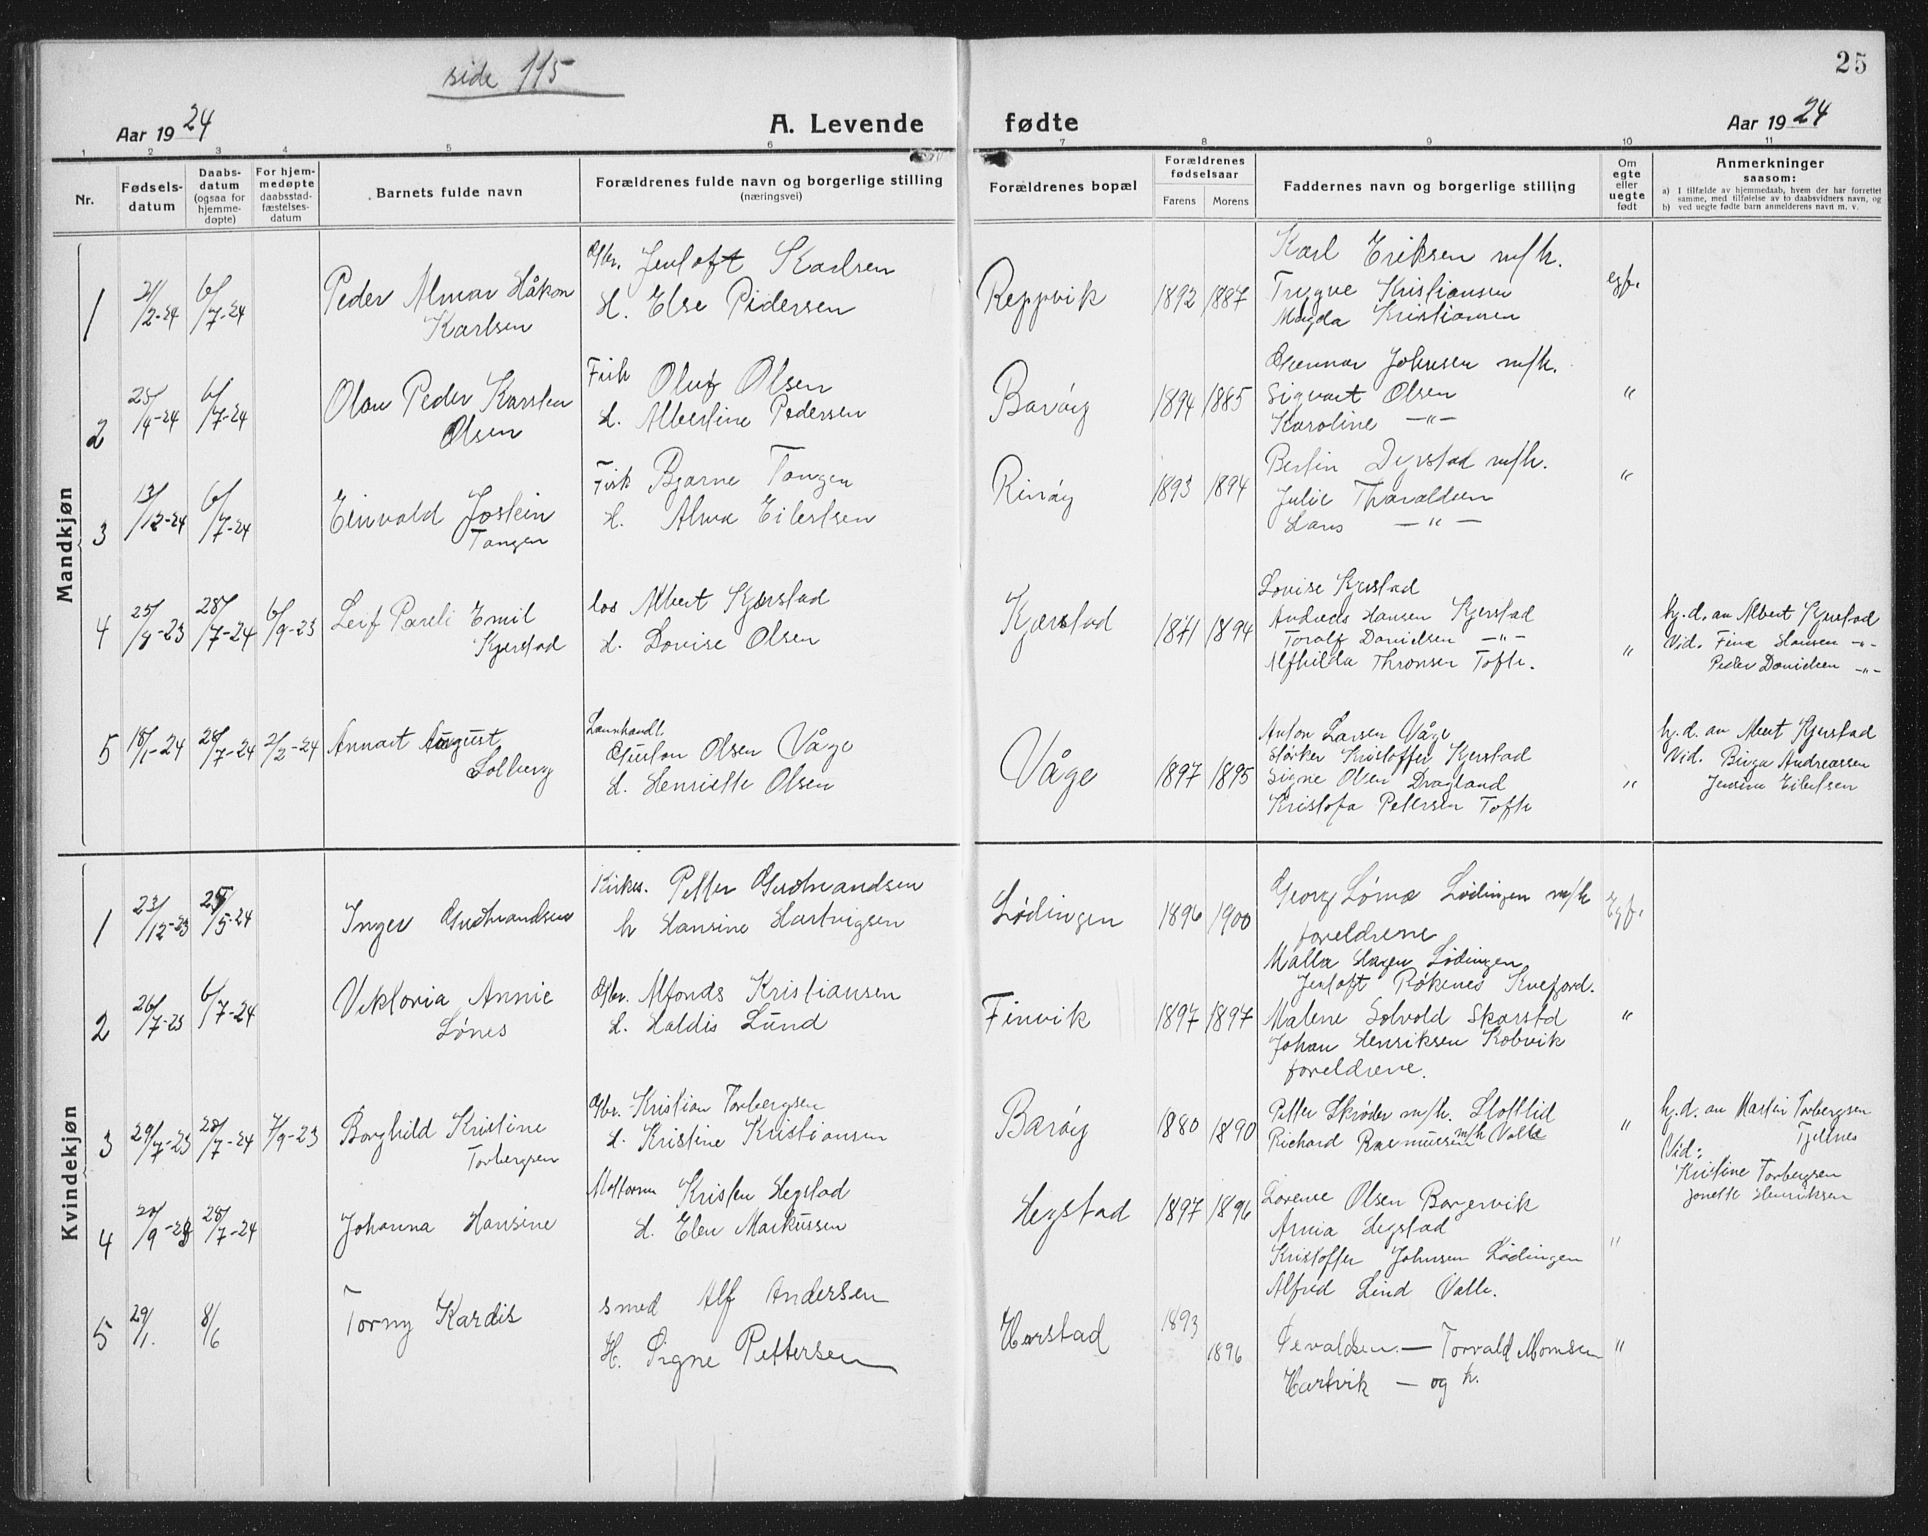 side 115
25
Aar 1924
A. Levende
fødte
Aar 1924
1 2 3 4 5 6 7 8 9 10 11
Nr.
Fødsels-
datum
Daabs-
datum
(ogsaa for
hjemme-
døpte)
For hjem-
medøpte
daabsstad-
fæstelses-
datum
Barnets fulde navn
Forældrenes fulde navn og borgerlige stilling
(næringsvei)
Forældrenes bopæl
Forældrenes
fødselsaar
Farens Morens
Faddernes navn og borgerlige stilling
Om
egte
eller
uegte
født
Anmerkninger
saasom:
a) I tilfælde av hjemmedaab, hvem der har forrettet
samme, med tilføielse av to daabsvidners navn, og
b) ved uegte fødte barn anmelderens navn m. v.
Mandkjøn
1
21/2-24
6/7-24
Peder Almar Håkon
Karlsen
Gbr. Jenloft Karlsen
H. Else Pedersen
Reppvik
1892 1887
Karl Eriksen m/h.
Trygve Kristiansen
Magda Kristiansen
egf.
2
25/4-24
6/7-24
Olav Peder Karsten
Olsen
Fisk Oluf Olsen
H. Albertine Pedersen
Barøy
1894 1885
Gunnar Johnsen m/h.
Sigvart Olsen
Karoline —"—
"
3
13/12-24
6/7-24
Einvald Jostein
Tangen
Fisk Bjarne Tangen
H. Alma Eilertsen
Rinøy
1893 1894
Bertin Dyrstad m/h.
Julie Tharaldsen
Hans —"—
"
4
25/8-23
28/7-24
6/9-23
Leif Pareli Emil
Kjerstad
los Albert Kjerstad
H. Lovise Olsen
Kjerstad
1871 1894
Lovise Kjerstad
Andreas Hansen Kjerstad
Toralf Danielsen —"—
Alfhilda Thronsen Toft.
"
hj.d. av Albert Kjerstad
Vid. Fina Hansen —"—
Peder Danielsen —"—
5
18/1-24
28/7-24
2/2-24
Annart August
Solberg
Laurhandl.
Gustav Olsen Våge
H. Henriette Olsen
Våge
1897 1895
Anton Larsen Våge
Størker Kristoffer Kjerstad
Signe Olsen Dragland
Kristofa Petersen Toft
"
hj.d. av Albert Kjerstad
Vid. Birga Andreassen
Jensine Eilertsen
Kvindekjøn
1
23/12-23
25/5-24
Inger Gudmandsen
Kirkes. Petter Gudmandsen
h Hansine Hartvigsen
Lødingen
1896 1900
Georg Lødingen m/h
foreldrene
Egf.
2
26/7-23
6/7-24
Viktoria Annie
Lønes
Gbr. Alfonds Kristiansen
H. Haldis Lund
Finvik
1897 1897
Malla Hagen Lødingen
Jenloft Røkenes Kvefjord.
Malene Solvold Skarstd
Johan Henriksen Kobvik
foreldrene.
"
3
29/7-23
28/7-24
7/9-23
Borghild Kristine
Torbergsen
Gbr. Kristian Torbergsen
H. Kristine Kristiansen
Barøy
1880 1890
Petter Skrøder m/h. Slottlid
Richard Rasmussen m/h Valle
"
hj.d. av Martin Torbergsen
Tjellnes
Vid:
Kristine Torbergsen
Jonette Henriksen
4
20/9-23
28/7-24
Johanna Hansine
Motorm Kristen Hegstad
H. Elen Markussen
Hegstad
1897 1896
Lorense Olsen Borgervik
Anna Hegstad
Kristoffer Johnsen Lødingen
Alfred Lind Valle.
"
5
29/1.
8/6
Torny Kardis
smed Alf Andersen
H. Signe Pettersen
Harstad
1893
1896
Torvald Momsen
Hartvik — og h.
"